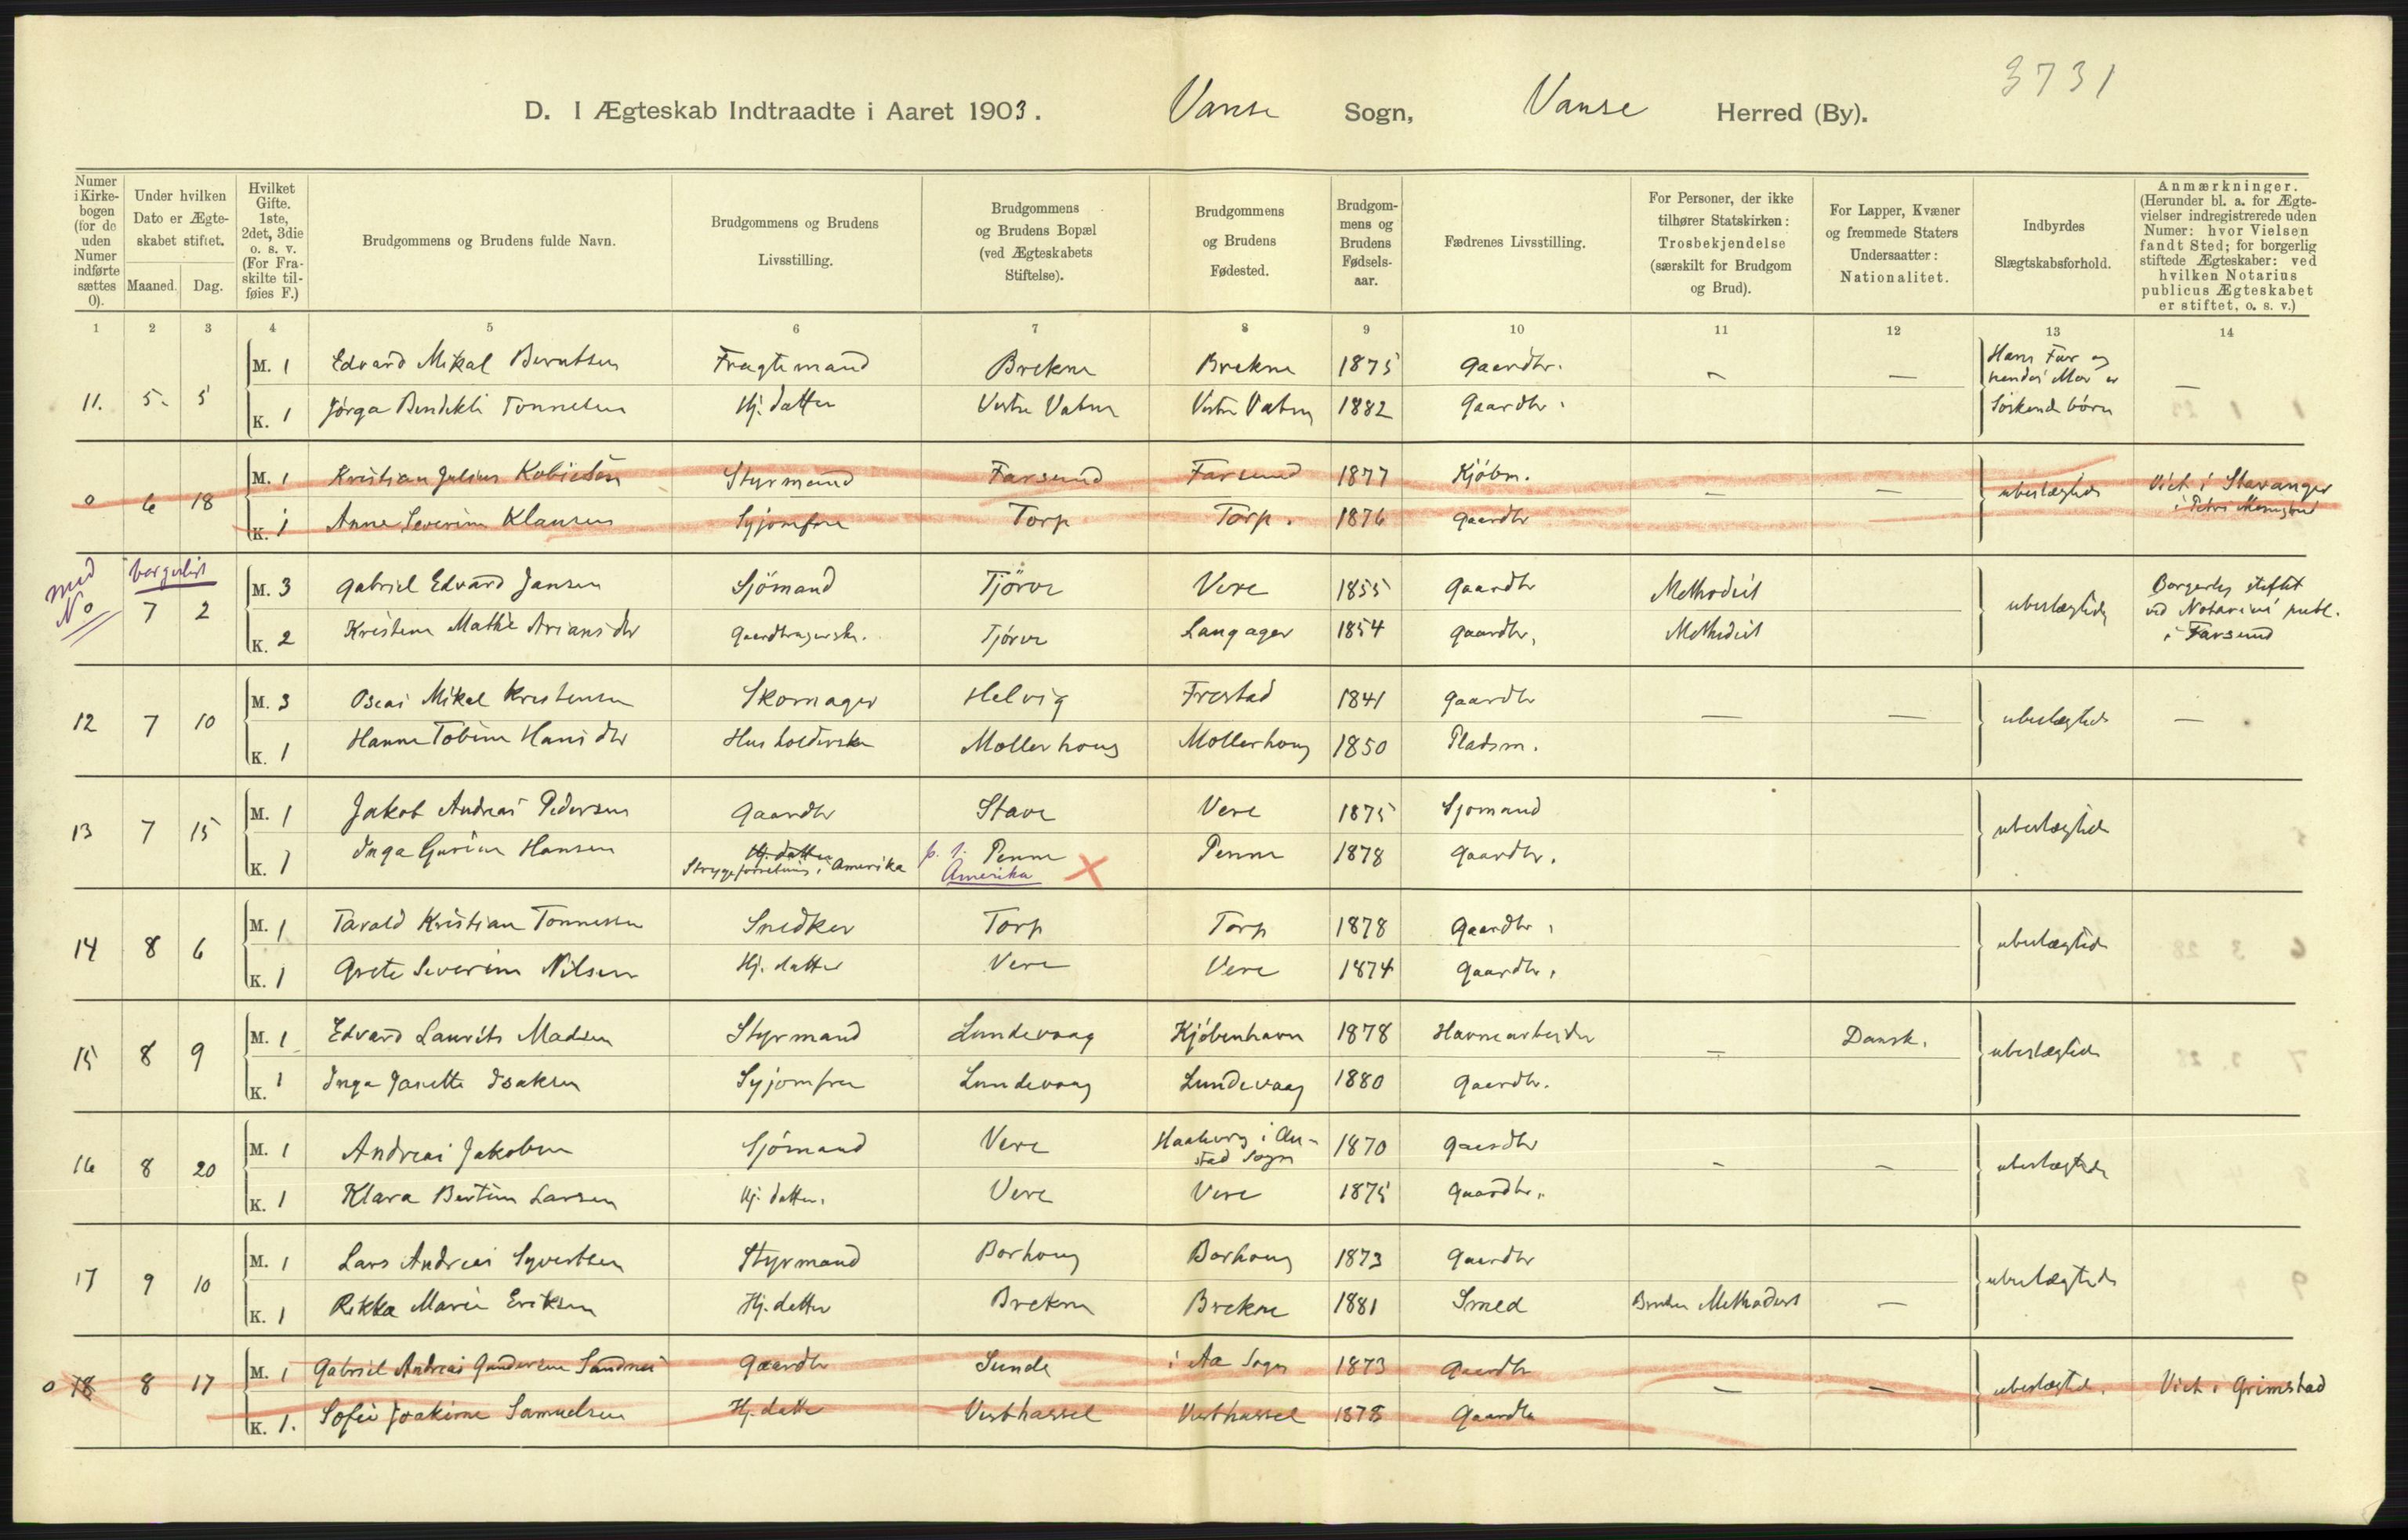 3731
D. I Ægteskab Indtraadte i Aaret 1903. Vanse Sogn, Vanse Herred (By).
Numer i Kirkebogen (for de uden Numer indførte sættes 0).
Under hvilken Dato er Ægteskabet stiftet.
Maaned. Dag.
Hvilket Gifte. 1ste, 2det, 3die o. s. v. (For Fraskilte tilføies F.)
Brudgommens og Brudens fulde Navn.
Brudgommens og Brudens Livsstilling.
Brudgommens og Brudens Bopæl (ved Ægteskabets Stiftelse).
Brudgommens og Brudens Fødested.
Brudgommens og Brudens Fødselsaar.
Fædrenes Livsstilling.
For Personer, der ikke tilhører Statskirken: Trosbekjendelse (særskilt for Brudgom og Brud).
For Lapper, Kvæner og fremmede Staters Undersaatter: Nationalitet.
Indbyrdes Slægtskabsforhold.
Anmærkninger. (Herunder bl. a. for Ægtevielser indregistrerede uden Numer: hvor Vielsen fandt Sted; for borgerlig stiftede Ægteskaber: ved hvilken Notarius publicus Ægteskabet er stiftet, o. s. v.)
1 2 3 4 5 6 7 8 9 10 11 12 13 14
11. 5. 5
M. 1 Edvard Mikal Berntsen Fragtemand Brekne Brekne 1875 Gaardbr. - - Hans Far og hendes Mor er Søskendebørn -
K. 1 Jørga Bendikte Tonnesen Hj. datter Vestre Vatne Vestre Vatne 1882 Gaardbr.
0 6 18
M. 1 Kristian Julius Styrmand Farsund Farsund 1877 Kjøbm. - - ubeslægtede Viet i Stavanger i Petri Menighed
K. 1 Anne Severine Klausen Syjomfru Torp Torp. 1876 Gaardbr
med No borgerligt 7 2
M. 3 Gabriel Edvard Jansen Sjömand Tjörve Vere 1855 Gaardbr Methodist ubeslægtede Borgerlig stiftet ved Notarius publ. i Farsund
K. 2 Kristine Mathie Ariansdtr Gaardbrugerske. Tjörve Langager 1854 Gaardbr. Methodist
12 7 10
M. 3 Oscar Mikal Kristensen Skomager Helvig Frestad 1841 Gaardbr - - ubeslægtede -
K. 1 Hanne Tobine Hansdtr Husholderske Mollerhoug Mollerhoug 1850 Pladsm.
13 7 15
M. 1 Jakob Andreas Pedersen Gaardbr Stave Vere 1875 Sjomand ubeslægtede
K. 1 Inga Gurine Hansen Hj. datter Strygeforretning i Amerika p. t. Penne Amerika Penne 1878 Gaardbr.
14 8 6
M. 1 Tarald Kristian Tonnessen Snedker Torp Torp 1878 Gaardbr. ubeslægtede
K. 1 Grete Severine Nilsen Hj. datter Vere Vere 1874 Gaardbr.
15 8 9
M. 1 Edvard Laurits Madsen Styrmand Lundevaag Kjöbenhavn 1878 Havnearbeider - Dansk. ubeslægtede
K. 1 Inga Janette Isaksen Syjomfru Lundevaag Lundevaag 1880 Gaardbr.
16 8 20
M. 1 Andreas Jakobsen Sjömand Vere Haaberg i Austad Sogn 1870 Gaardbr - - ubeslægtede
K. 1 Klara Bertine Larsen Hj. datter. Vere Vere 1875 Gaardbr.
17 9 10
M. 1 Lars Andreas Syvertsen Styrmand Borhoug Borhoug 1873 Gaardbr ubeslægtede
K. 1 Rikka Marie Eriksen Hj. datter Brekne Brekne 1881 Smed Bruden Methodist -
0 18 8 17
M. 1 Gabriel Andreas Gundersen Sandnes Gaardbr Sunde i Aa Sogn 1873 Gaardbr - - ubeslægtede. Viet i Grimstad
K. 1. Sofie Joakime Samuelsen Hj. datter Vesthassel Vesthassel 1878 Gaardbr